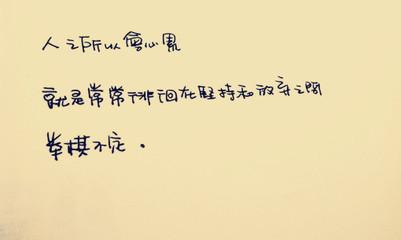 人之所以會心累
就是常常徘徊在坚持和放弃之間
举棋不定.